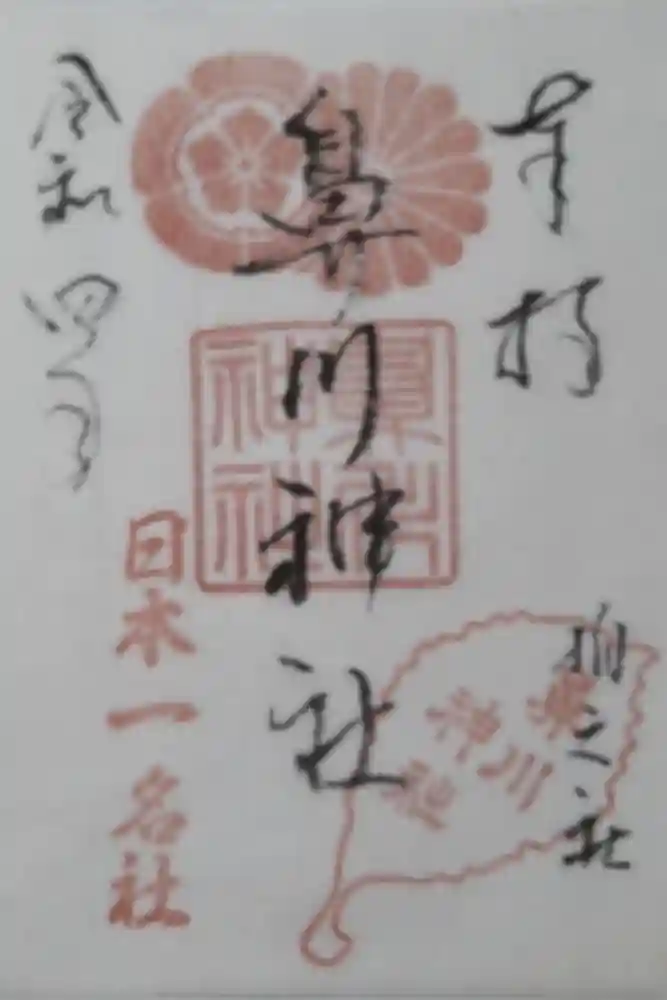 奉拝
柏之社
鼻川神社
鼻川
神社
鼻川
神社
日本一名社
令和四年